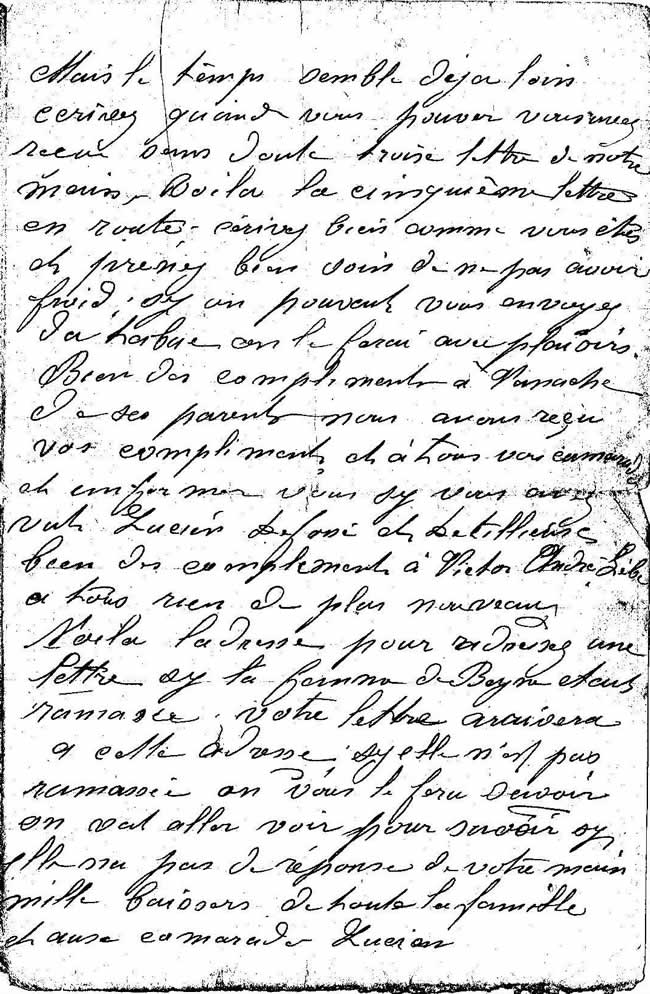 Mais le temps semble deja loin
ecrivez quand vous pouver vous avez
recue sans doute troise lettre de notre
main. Voila la cinsquième lettre
en route. écrivez bien comme vous êtes
et prenéz bien soin de ne pas avoir
froid, sy on pouvait vous envoyez
du tabac on le ferai avec plaisirs.
Bien des compliments à Vanache
de ses parents nous avons reçu
vos compliments, et à tous vos camarade
et informer vous sy vous avez
vute Lucien Defossé et
bien des compliments à Victor André
a tous rien de plus nouveau
Voila ladresse pour adressez une
lettre sy la femme de Beyne etait
ramassée. votre lettre araivera
a cette adresse, sy elle n'est pas
ramassée on vous le fera savoir
on vat aller voir pour savoir sy
elle na pas de réponse de votre main
mille baisers de toute la famille
et ause camarade Lucien